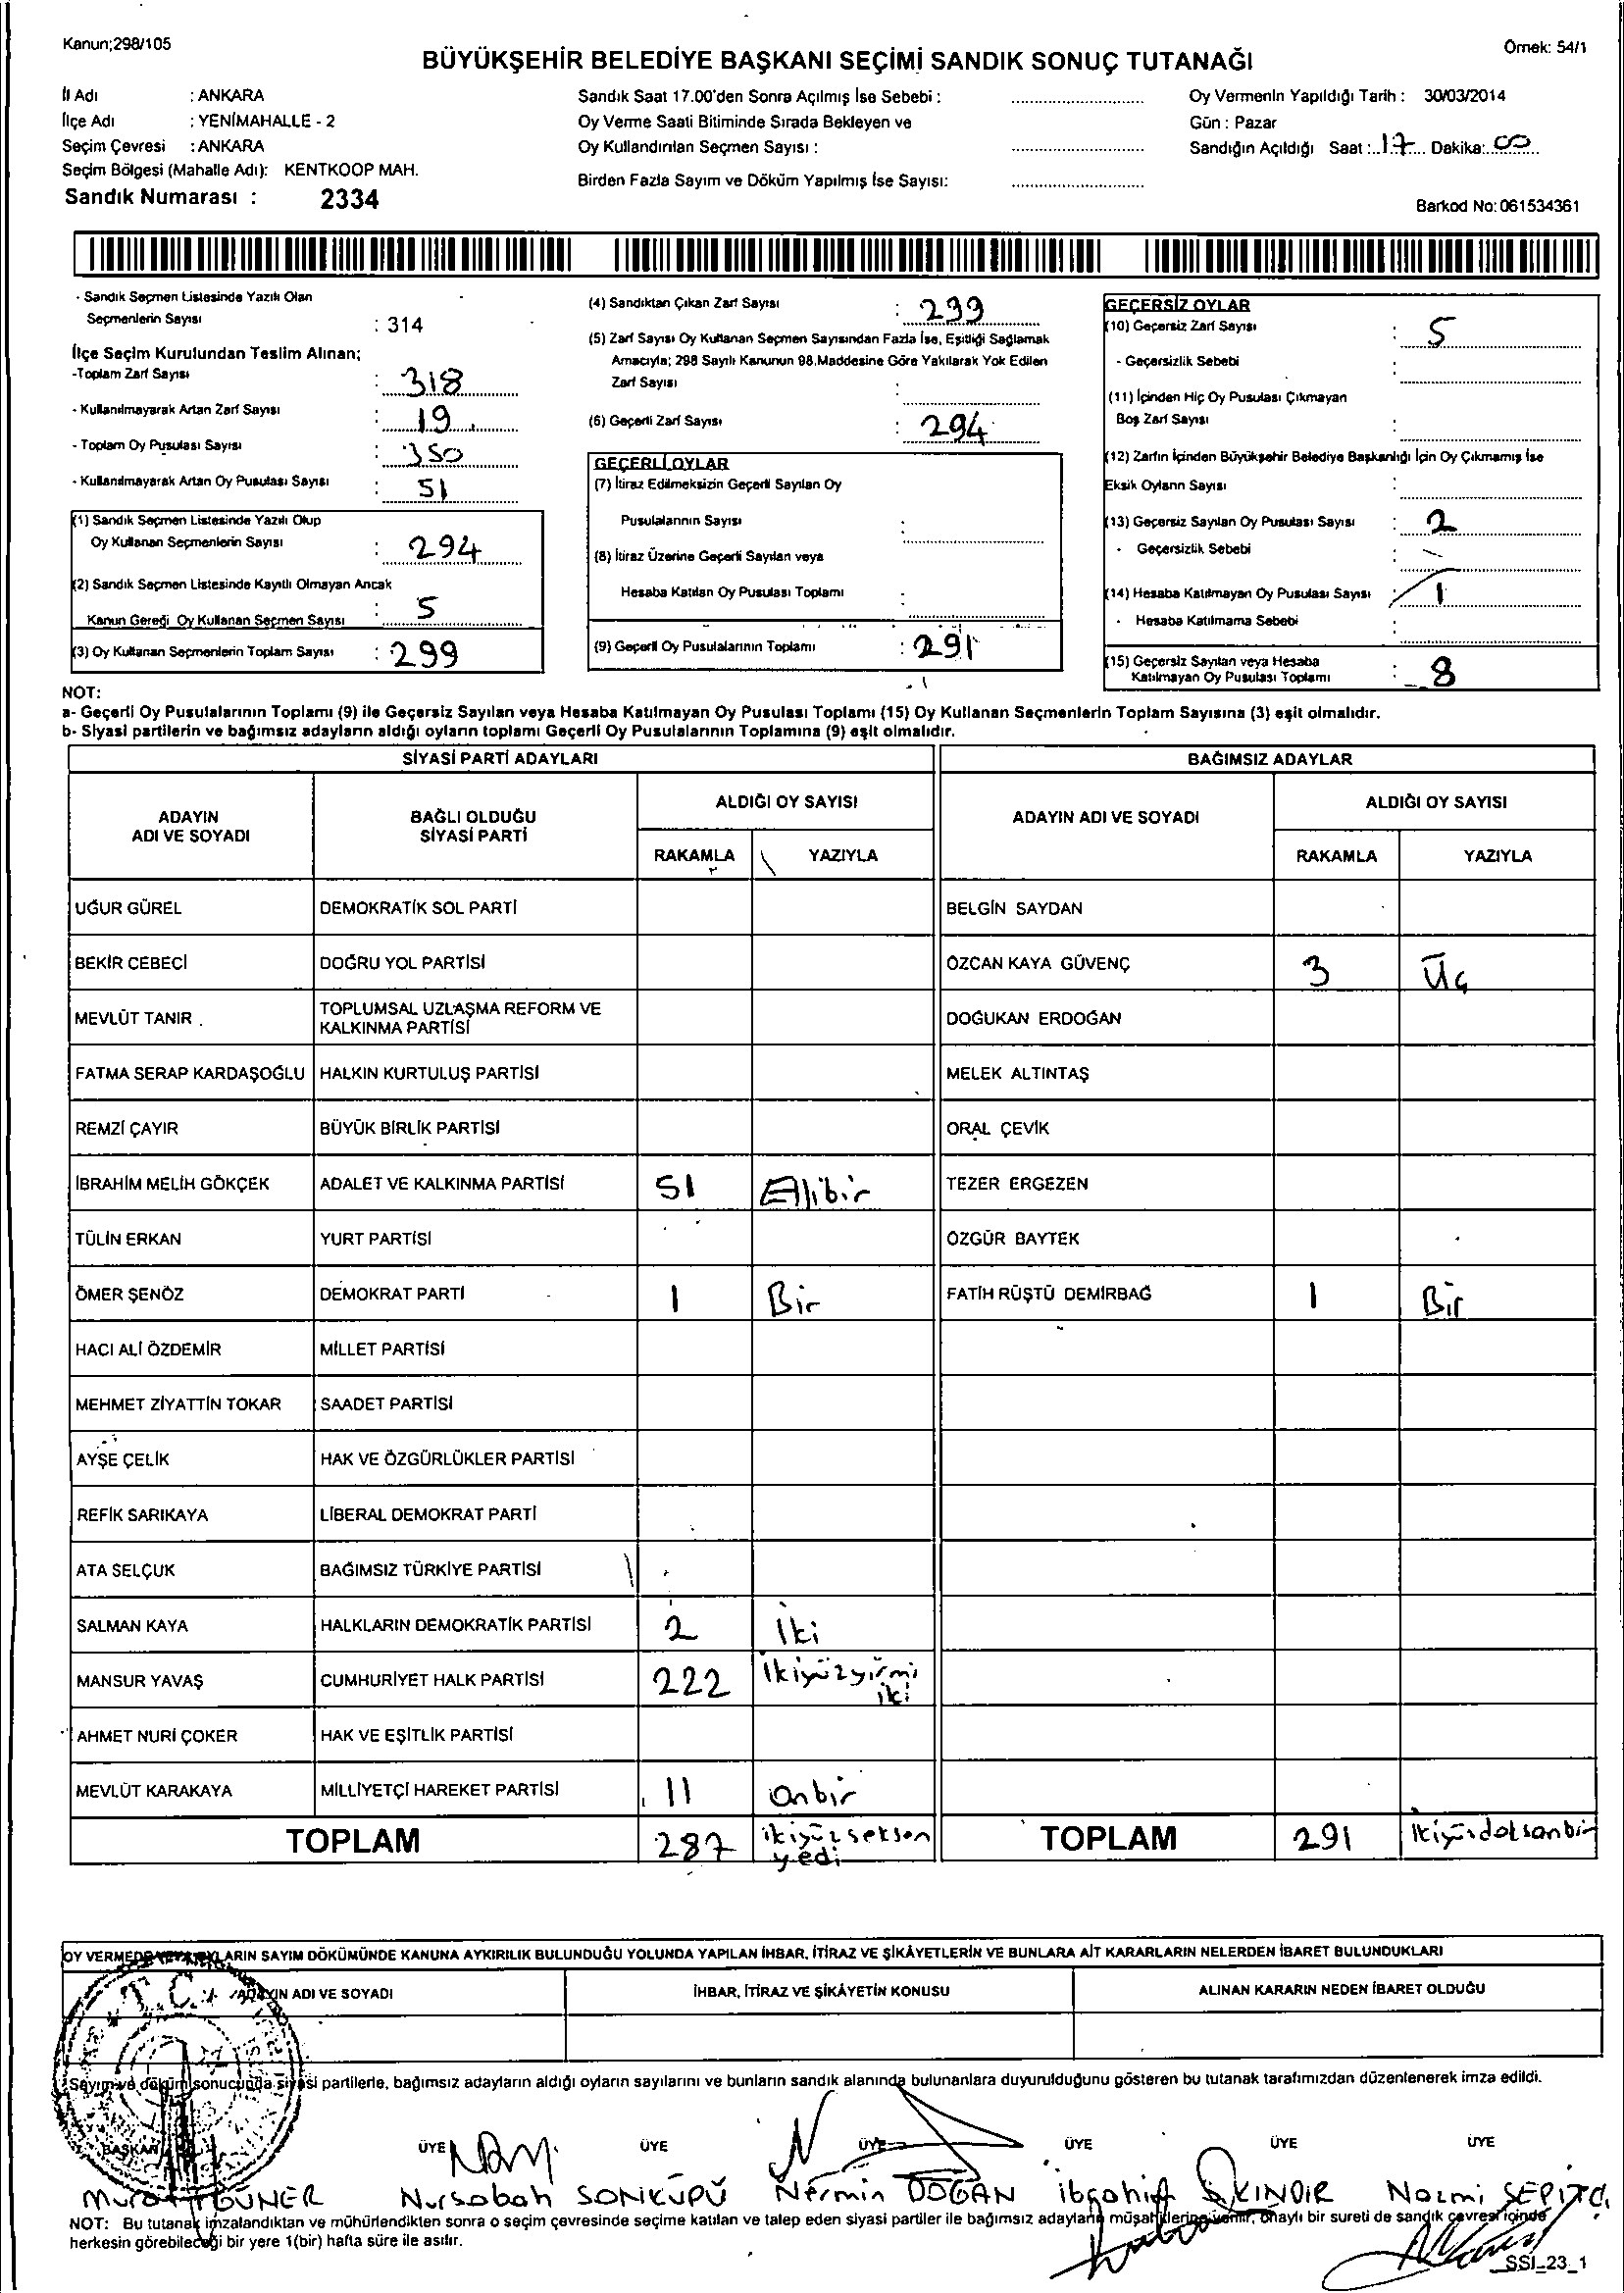 Kanun;298/105
Örnek: 54/1
BÜYÜKŞEHİR BELEDİYE BAŞKANI SEÇİMİ SANDIK SONUÇ TUTANAĞI
İl Adı : ANKARA
İlçe Adı : YENİMAHALLE - 2
Seçim Çevresi : ANKARA
Seçim Bölgesi (Mahalle Adı): KENTKOOP MAH.
Sandık Numarası : 2334
Sandık Saat 17.00'den Sonra Açılmış İse Sebebi :
Oy Verme Saati Bitiminde Sırada Bekleyen ve
Oy Kullandırılan Seçmen Sayısı :
Birden Fazla Sayım ve Döküm Yapılmış İse Sayısı:
Oy Vermenin Yapıldığı Tarih : 30/03/2014
Gün : Pazar
Sandığın Açıldığı Saat : 17 Dakika: 00
Barkod No: 061534361
- Sandık Seçmen Listesinde Yazılı Olan
Seçmenlerin Sayısı : 314
İlçe Seçim Kurulundan Teslim Alınan;
-Toplam Zarf Sayısı : 318
- Kullanılmayarak Artan Zarf Sayısı : 19
- Toplam Oy Pusulası Sayısı : 350
- Kullanılmayarak Artan Oy Pusulası Sayısı : 51
(1) Sandık Seçmen Listesinde Yazılı Olup
Oy Kullanan Seçmenlerin Sayısı : 294
(2) Sandık Seçmen Listesinde Kayıtlı Olmayan Ancak
Kanun Gereği Oy Kullanan Seçmen Sayısı : 5
(3) Oy Kullanan Seçmenlerin Toplam Sayısı : 299
(4) Sandıktan Çıkan Zarf Sayısı : 299
(5) Zarf Sayısı Oy Kullanan Seçmen Sayısından Fazla İse, Eşitliği Sağlamak
Amacıyla; 298 Sayılı Kanunun 98.Maddesine Göre Yakılarak Yok Edilen
Zarf Sayısı :
(6) Geçerli Zarf Sayısı : 294
GEÇERLİ OYLAR
(7) İtiraz Edilmeksizin Geçerli Sayılan Oy
Pusulalarının Sayısı :
(8) İtiraz Üzerine Geçerli Sayılan veya
Hesaba Katılan Oy Pusulası Toplamı :
(9) Geçerli Oy Pusulalarının Toplamı : 291
GEÇERSİZ OYLAR
(10) Geçersiz Zarf Sayısı : 5
- Geçersizlik Sebebi :
(11) İçinden Hiç Oy Pusulası Çıkmayan
Boş Zarf Sayısı :
(12) Zarfın İçinden Büyükşehir Belediye Başkanlığı İçin Oy Çıkmamış İse
Eksik Oyların Sayısı :
(13) Geçersiz Sayılan Oy Pusulası Sayısı : 2
- Geçersizlik Sebebi :
(14) Hesaba Katılmayan Oy Pusulası Sayısı 1
- Hesaba Katılmama Sebebi :
(15) Geçersiz Sayılan veya Hesaba
Katılmayan Oy Pusulası Toplamı : 8
NOT:
a- Geçerli Oy Pusulalarının Toplamı (9) ile Geçersiz Sayılan veya Hesaba Katılmayan Oy Pusulası Toplamı (15) Oy Kullanan Seçmenlerin Toplam Sayısına (3) eşit olmalıdır.
b- Siyasi partilerin ve bağımsız adayların aldığı oyların toplamı Geçerli Oy Pusulalarının Toplamına (9) eşit olmalıdır.
SİYASİ PARTİ ADAYLARI BAĞIMSIZ ADAYLAR
ADAYIN ADI VE SOYADI BAĞLI OLDUĞU SİYASİ PARTİ ALDIĞI OY SAYISI ADAYIN ADI VE SOYADI ALDIĞI OY SAYISI
RAKAMLA YAZIYLA RAKAMLA YAZIYLA
UĞUR GÜREL DEMOKRATİK SOL PARTİ BELGİN SAYDAN
BEKİR CEBECİ DOĞRU YOL PARTİSİ ÖZCAN KAYA GÜVENÇ 3 Üç
MEVLÜT TANIR TOPLUMSAL UZLAŞMA REFORM VE KALKINMA PARTİSİ DOĞUKAN ERDOĞAN
FATMA SERAP KARDAŞOĞLU HALKIN KURTULUŞ PARTİSİ MELEK ALTINTAŞ
REMZİ ÇAYIR BÜYÜK BİRLİK PARTİSİ ORAL ÇEVİK
İBRAHİM MELİH GÖKÇEK ADALET VE KALKINMA PARTİSİ 51 Ellibir TEZER ERGEZEN
TÜLİN ERKAN YURT PARTİSİ ÖZGÜR BAYTEK
ÖMER ŞENÖZ DEMOKRAT PARTİ 1 Bir FATİH RÜŞTÜ DEMİRBAĞ 1 Bir
HACI ALİ ÖZDEMİR MİLLET PARTİSİ
MEHMET ZİYATTİN TOKAR SAADET PARTİSİ
AYŞE ÇELİK HAK VE ÖZGÜRLÜKLER PARTİSİ
REFİK SARIKAYA LİBERAL DEMOKRAT PARTİ
ATA SELÇUK BAĞIMSIZ TÜRKİYE PARTİSİ
SALMAN KAYA HALKLARIN DEMOKRATİK PARTİSİ 2 İki
MANSUR YAVAŞ CUMHURİYET HALK PARTİSİ 222 ikiyüzyirmi iki
AHMET NURİ ÇOKER HAK VE EŞİTLİK PARTİSİ
MEVLÜT KARAKAYA MİLLİYETÇİ HAREKET PARTİSİ 11 Onbir
TOPLAM 287 ikiyüzseksen yedi TOPLAM 291
OY VERMEDE VEYA OYLARIN SAYIM DÖKÜMÜNDE KANUNA AYKIRILIK BULUNDUĞU YOLUNDA YAPILAN İHBAR, İTİRAZ VE ŞİKÂYETLERİN VE BUNLARA AİT KARARLARIN NELERDEN İBARET BULUNDUKLARI
ADAYIN ADI VE SOYADI İHBAR, İTİRAZ VE ŞİKÂYETİN KONUSU ALINAN KARARIN NEDEN İBARET OLDUĞU
T.C.
Sayım ve döküm sonucunda siyasi partilerle, bağımsız adayların aldığı oyların sayılarını ve bunların sandık alanında bulunanlara duyurulduğunu gösteren bu tutanak tarafımızdan düzenlenerek imza edildi.
BAŞKAN ÜYE ÜYE ÜYE ÜYE ÜYE ÜYE
Murat GÜNER Nursabah SONKÜPÜ Nermin DOĞAN İbrahim Nazmi
NOT: Bu tutanak imzalandıktan ve mühürlendikten sonra o seçim çevresinde seçime katılan ve talep eden siyasi partiler ile bağımsız adayların müşahitlerine verilir, onaylı bir sureti de sandık çevresi içinde
herkesin görebileceği bir yere 1(bir) hafta süre ile asılır.
SSI_23_1